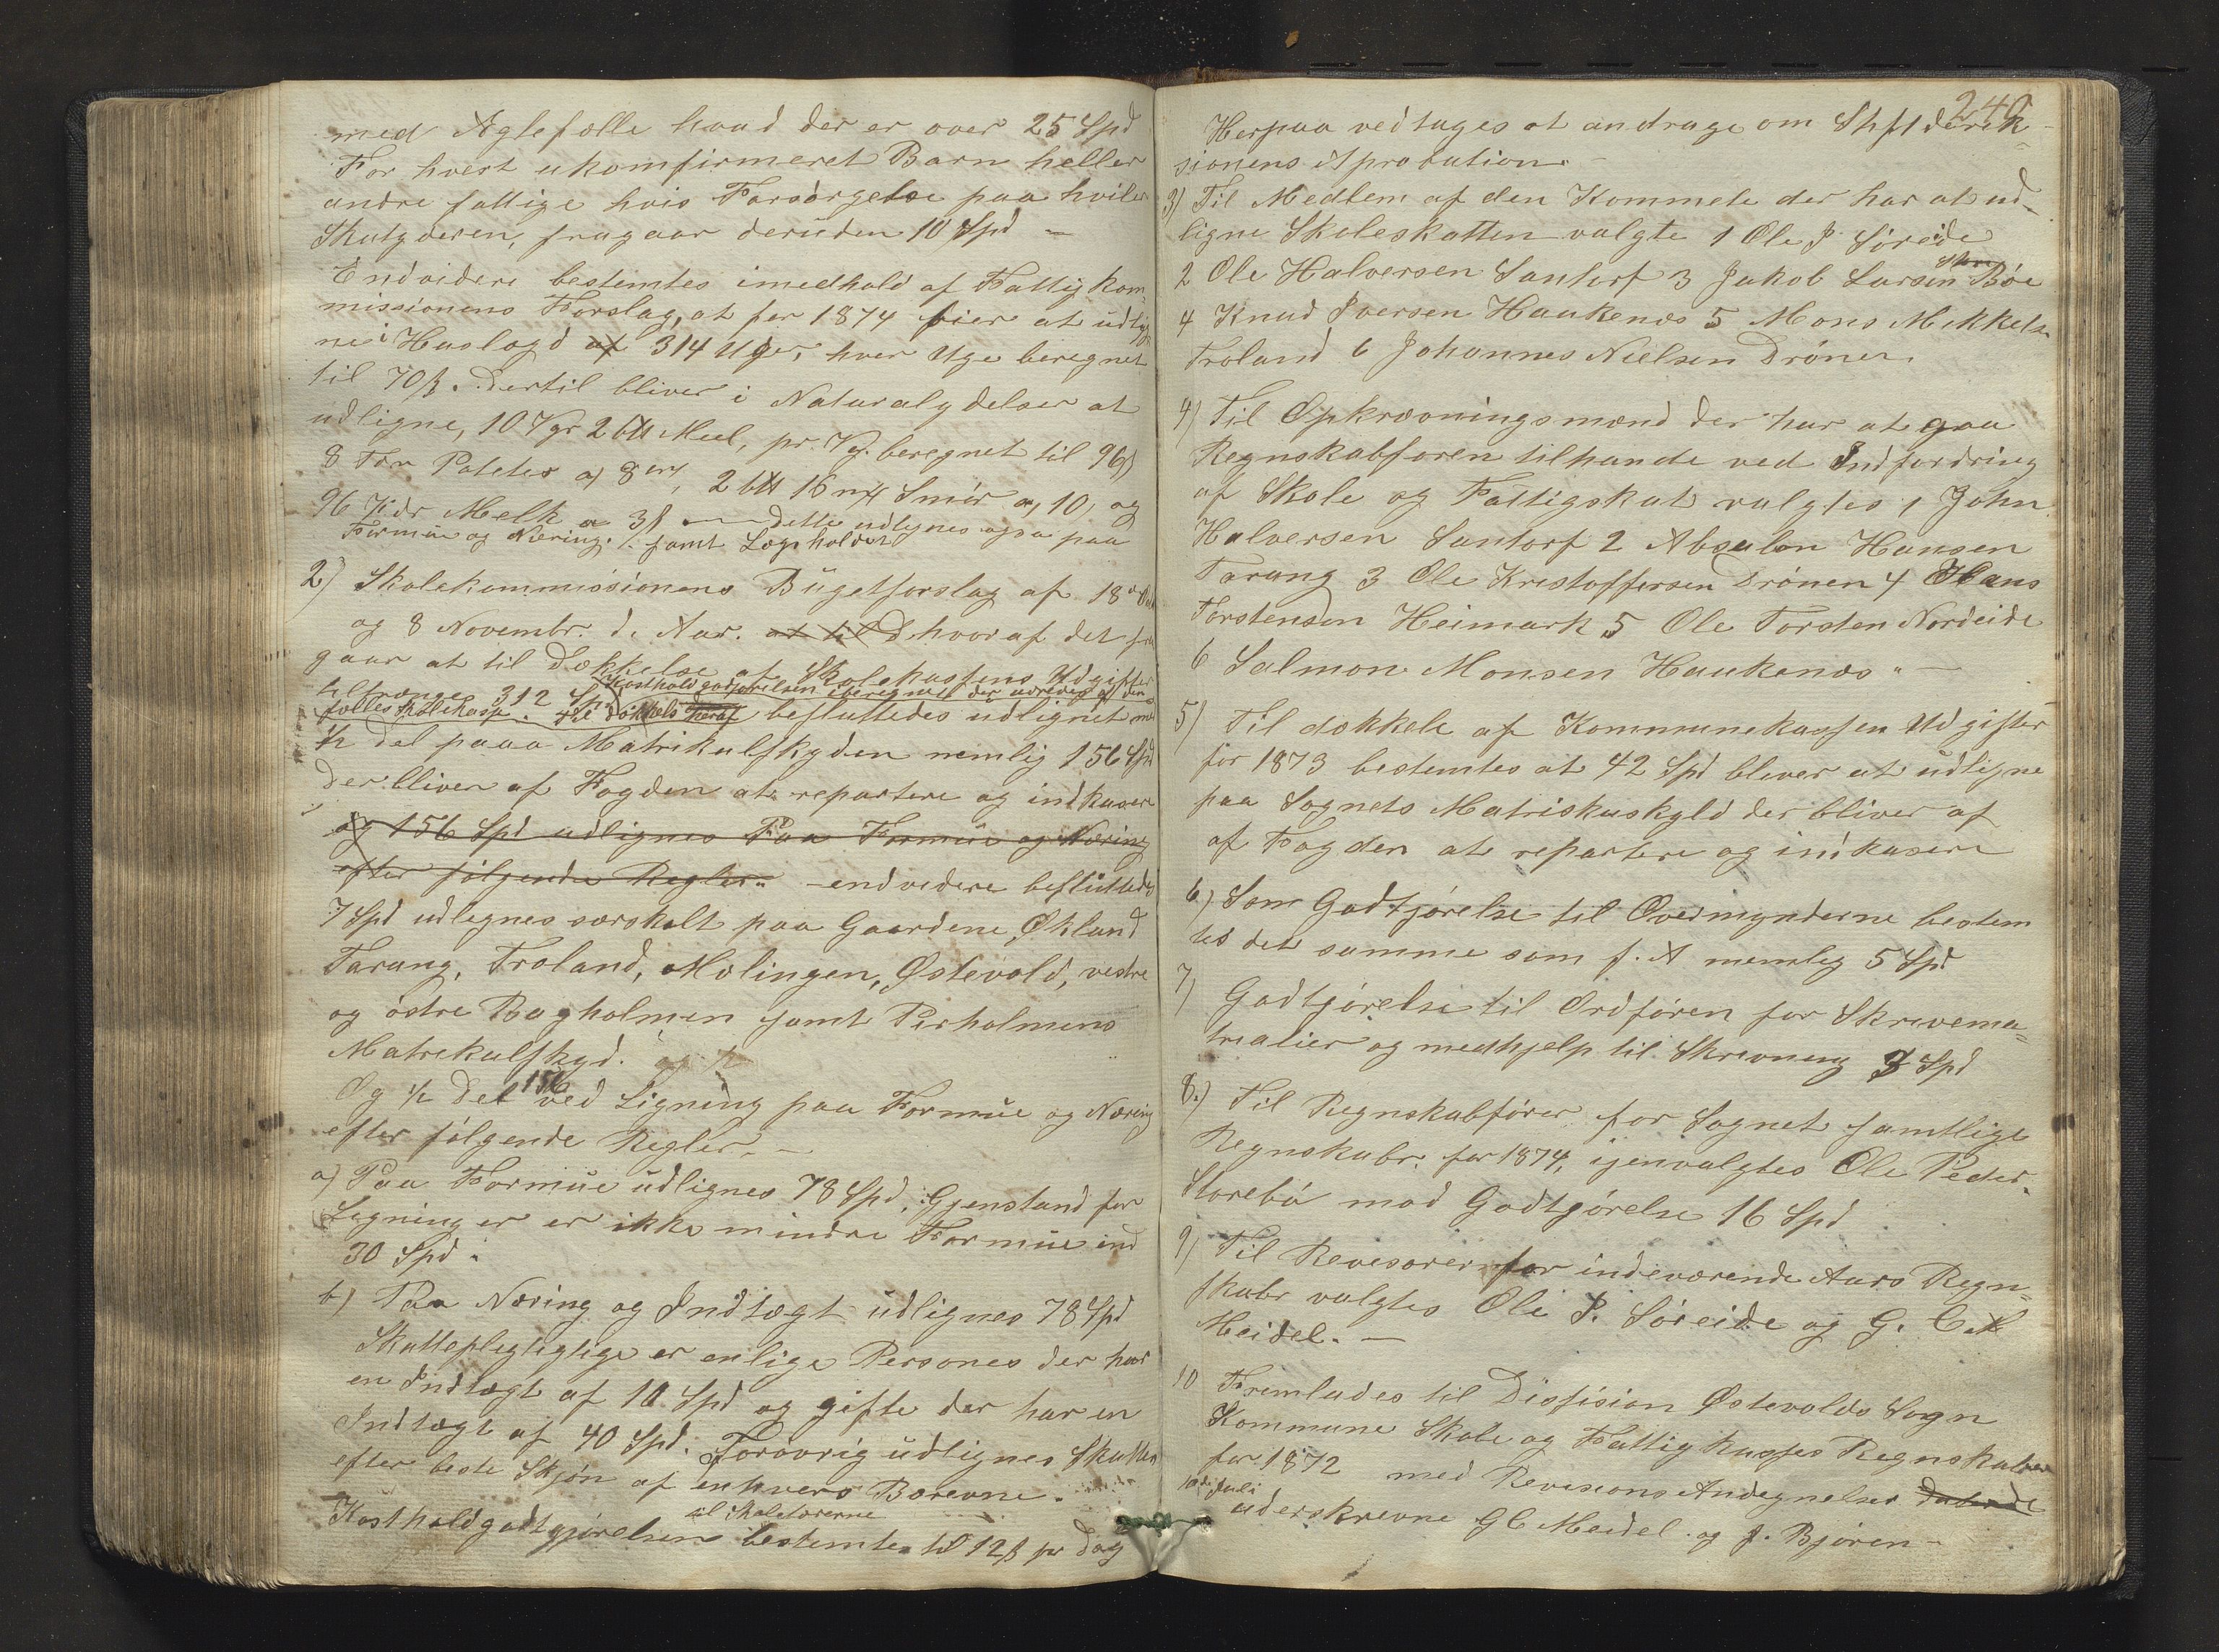 med Ægtefælle hvad der er over 25 Spd
For hvert ukomfirmeret Barn heller
andre fattige hvis Forsørgelse paa hviler
Skatyderen, fragaar deruden 10 Spd –
Endvidere bestemtes imedhold af Fattigkom-
missionens Forslag, at for 1874 bier at udlig-
ne i Huslægd af 314 Uger, hver Uge beregnet
til 70 ß. Dertil bliver i Naturalydelser at
udligne, 10 Vgr 2 Meel, pr. Vg. beregnet til 96 ß
8 Tdr Potetes a 8 ort, 2 16 Smör a, 10, og
96 Kdr Melk a 3 ß — dette udlignes ogsa paa
Formüe og Næring. samt Lægsholdet
2) Skolekommissionens Bügetforslag af 18
og 8 Novembr. d. Aar. at til D hvoraf det fra
gaar at til Dækkelse af Skolekassens Udgifter
Kosthold godtjørelsen iberegnet der udredes af den
tiltrænges 312 Spd
fælles Skolekasse. Til dækkels heraf besluttedes udlignet med
½ del paaa Matrikulskyden nemlig 156 Spd
der bliver af Fogden at repartere og indkasere
og 156 Spd udlignes Paa Formüe og Næring
efter følgende Regler.. – endvedere besluttedes
7 Spd udlegnes særskelt paa Gaardene Økland
Tarang, Troland, Mølingen, Østevold, vestre
og østre Bagholmen samt Perholmens
Matrekulskyd. og ½
Og ½ Del 156 ved Ligning paa Formüe og Næring
efter følgende Regler. –
a) Paa Formüe üdlignes 78 Spd, Gjenstand for
Legning er er ikke mindre Formüe end
30 Spd.
b) Paa Næring og Indtægt üdlignes 78 Spd
Skattepligtiglige er enlige Persones der har
en Indtægt af 10 Spd og gifte der har en
Indtægt af 40 Spd. Forøvrig üdlignes Skatten
efter beste Skjøn af enhvers Bæreevne.
til Skolelærerne
Kostholdgodtgjørelsen bestemtes til 12 ß pr Dag
240
Herpaa vedtages at andrage om Stiftderek-
sionens Aprobation. –
3) Til Medlem af den Kommete der har at ud-
ligne Skoleskatten valgte 1 Ole J. Søreide
2 Ole Halversen Santorf 3 Jakob Larsen Bøe
4 Knud Iversen Haukenæs 5 Mons Mikkels.
Troland 6 Johannes Nielsen Drönen.
4) Til Opkrævningsmænd der har at gaa
Regnskabføren tilhande ved Indfordring
af Skole og Fattigskat valgtes 1 John
Halversen Santorf 2 Absalon Hansen
Tarang 3 Ole Kristoffersen Drönen 4 Hans
Torstensen Heimark 5 Ole Torsten Nordeide
6 Salmon Monsen Haukenæs " —
5) Til dækkele af Kommunekassen Udgifter
for 1873 bestemtes at 42 Spd bliver at udligne
paa Sognets Matriskuskyld der bliver af
af Fogden at repartere og indkasere
6) Som Godtgjørelse til Overmynderne bestem
tes det samme som f. A nemlig 5 Spd
7) Godtgjørelse til Ordføren for Skrevema-
trealier og medhjelp til Skrevning 8 Spd
8.) Til Regnskabfører for Sognet samtlige
Regnskabr. for 1874, igenvalgtes Ole Peder.
Storebø mod Godtgjørelse 16 Spd
9) Til Revesorer for indeværende Aars Regn-
skabr valgtes Ole J. Søreide og G. C. M
Meidel. —
10 Fremlades til Dissision Østevolds Sogn
Kommune Skole og Fattig kasses Regnskaber
for 1872 med Revesions Andegnelser daterede
10de Juli
uderskrevne G C Meidel. og J. Bjøren –